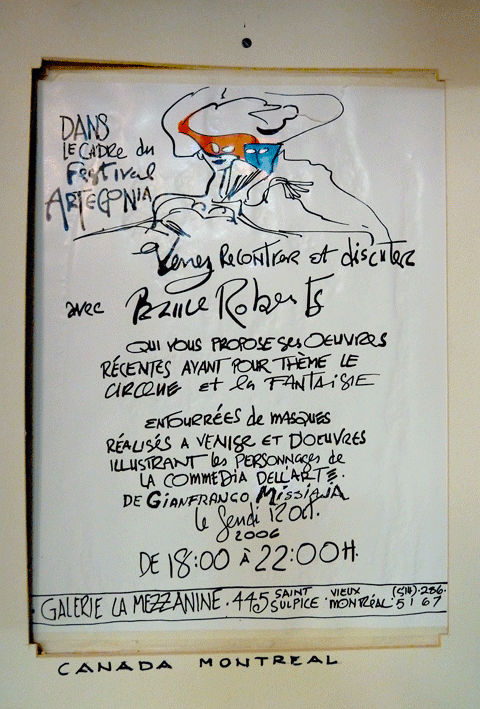 DANS
LE CADRE du
Festival
ARTEGONIA
Venez RECONTRER et discuter
avec BRUCE ROBERTS
QUI VOUS PROPOSE SES OEUVRES
RÉCENTES AYANT POUR THÈME LE
CIRQUE et la FANTAISIE
ENTOURRÉES de MASQUES
RÉALISÉS A VENISE ET D'OEUVRES
ILLUSTRANT les PERSONNAGES de
LA COMMEDIA DELL'ARTE.
DE GIANFRANCO MISSIAJA
le Jeudi 12 Oct.
2006
DE 18:00 À 22:00H.
GALERIE LA MEZZANINE · 445 SAINT SULPICE · VIEUX MONTRÉAL · (514) · 286 · 5167
CANADA MONTREAL